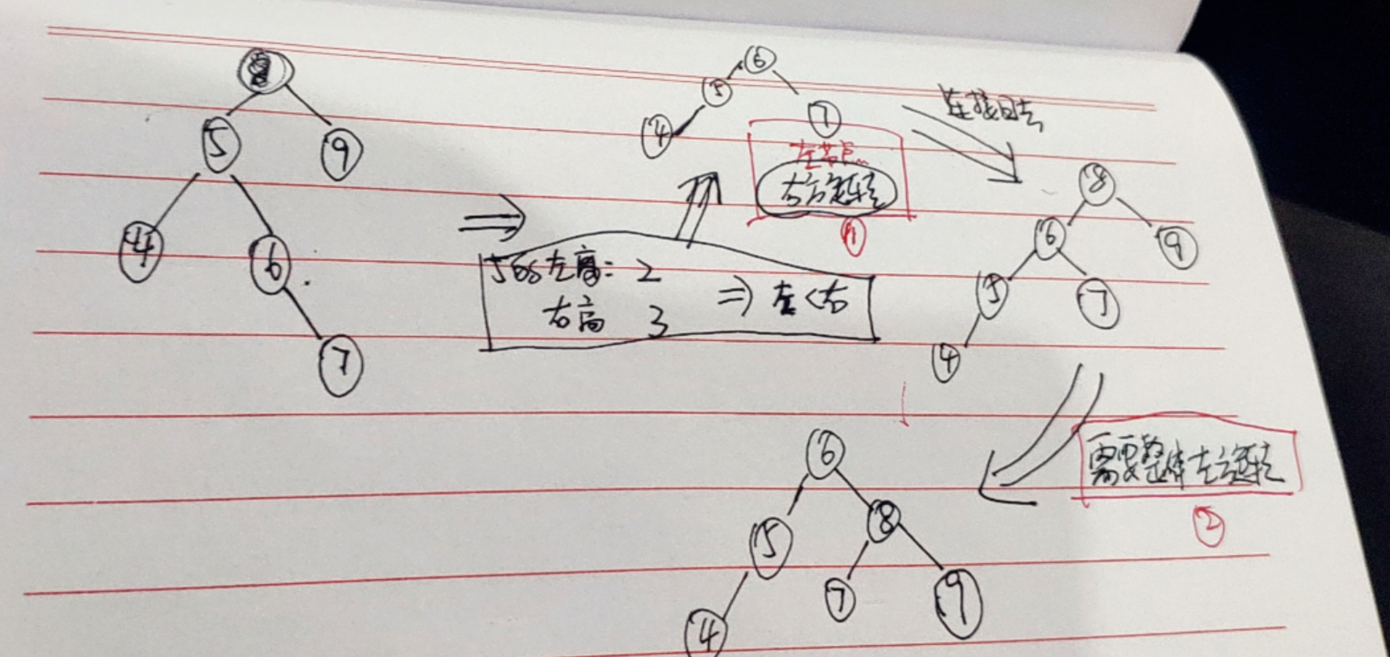 8
5 9
4 6
7
6
5
4 7
左节点
右旋转
1
连接回去
5的左高: 2
右高 3
⇒ 左<右
8
6 9
5 7
4
需要整体左旋转
2
6
5 8
7 9
4